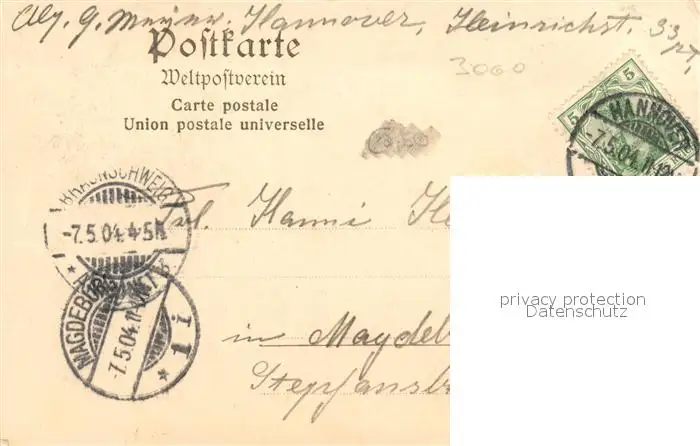 Abs. G. Meyer. Hannover, Heinrichst. 33
Postkarte
Weltpostverein
Carte postale
Union postale universelle
3060
5
5
HANNOVER
7.5.04.11-12
BRAUNSCHWEIG
-7.5.04.4-5N
Frl. Hanni
MAGDEBURG
7.5.04.11-
* 1 i
in Magdeb
Stephansb
privacy protection
Datenschutz